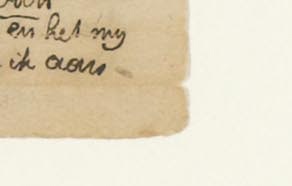 en het my
ik aan